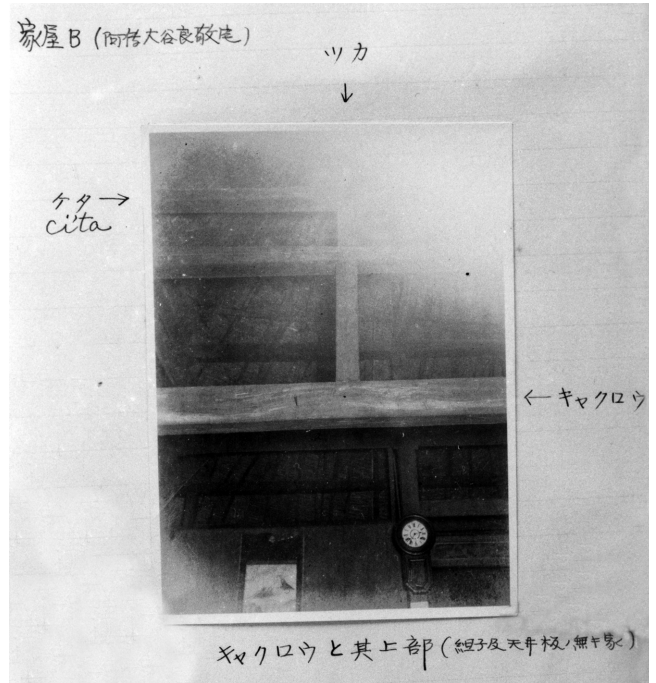 家屋B (阿措大谷良敬宅)
ツカ
↓
ケタ →
cita
← キャクロウ
キャクロウと其上部 (組子及天井板ノ無キ家)